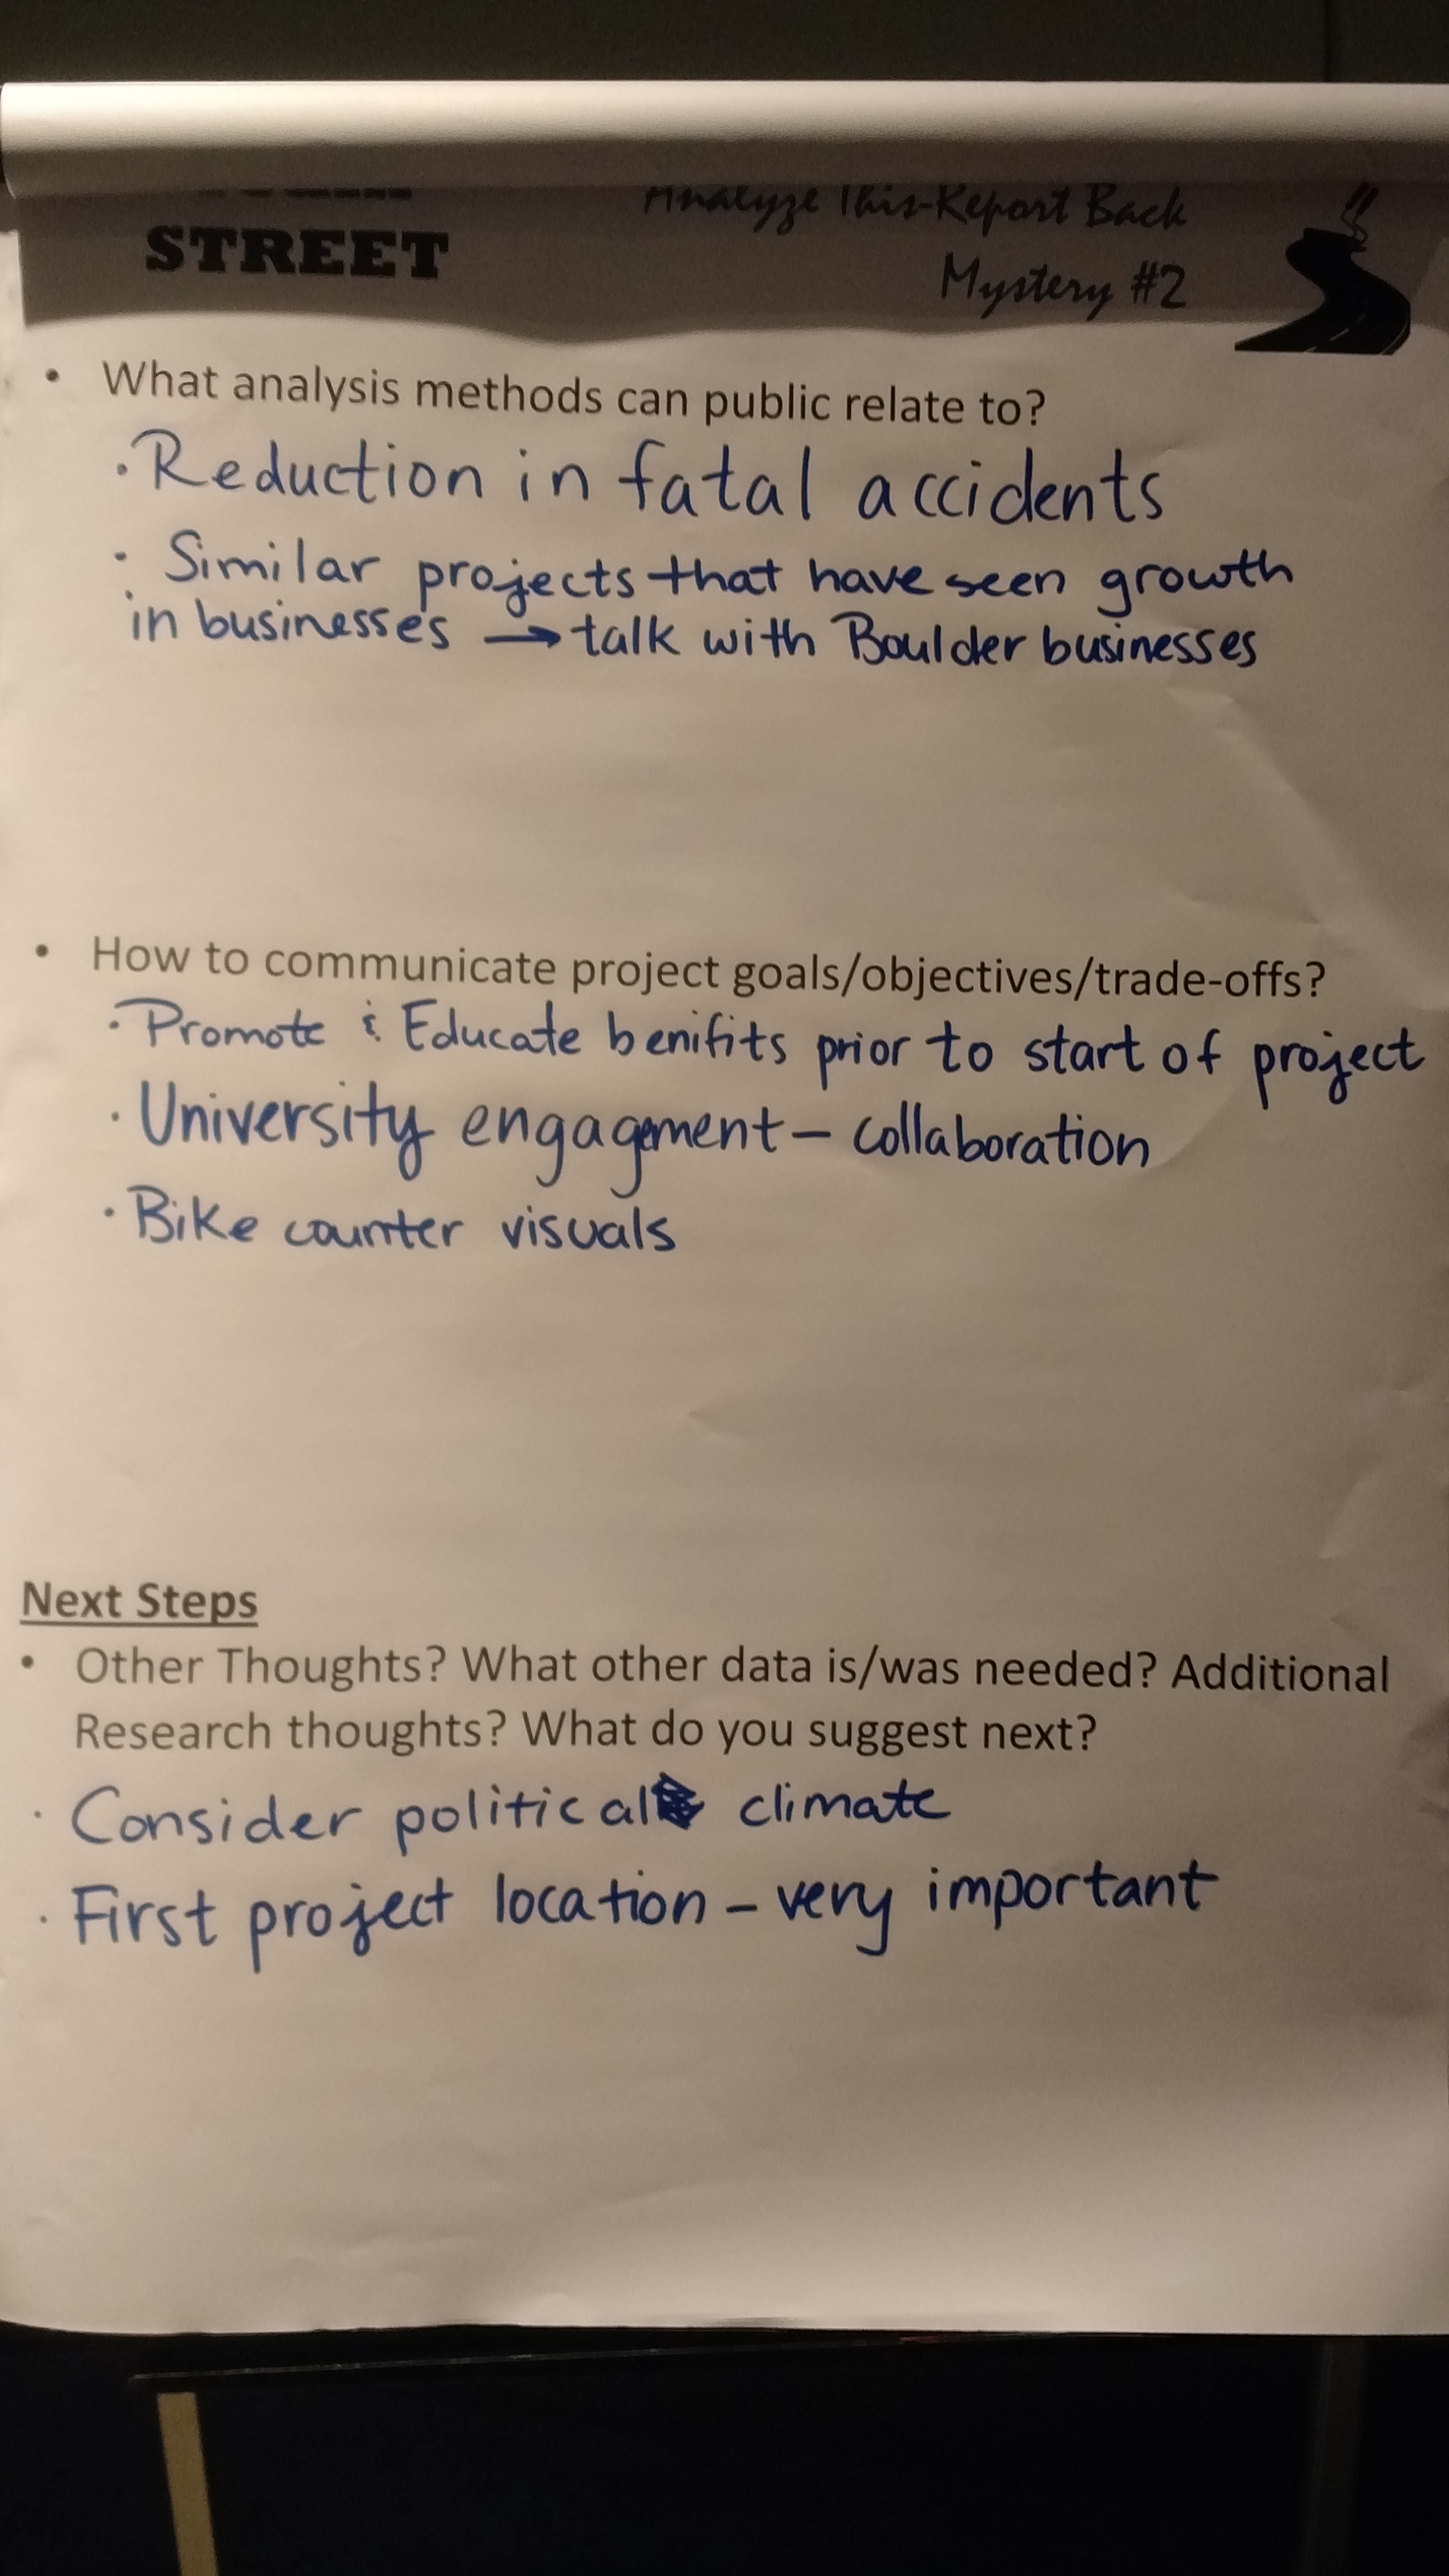 STREET
Analyze This-Report Back
Mystery #2
• What analysis methods can public relate to?
· Reduction in fatal accidents
· Similar projects that have seen growth
in businesses → talk with Boulder businesses
• How to communicate project goals/objectives/trade-offs?
· Promote & Educate benifits prior to start of project
· University engagement – collaboration
· Bike counter visuals
Next Steps
• Other Thoughts? What other data is/was needed? Additional
Research thoughts? What do you suggest next?
· Consider political climate
· First project location – very important